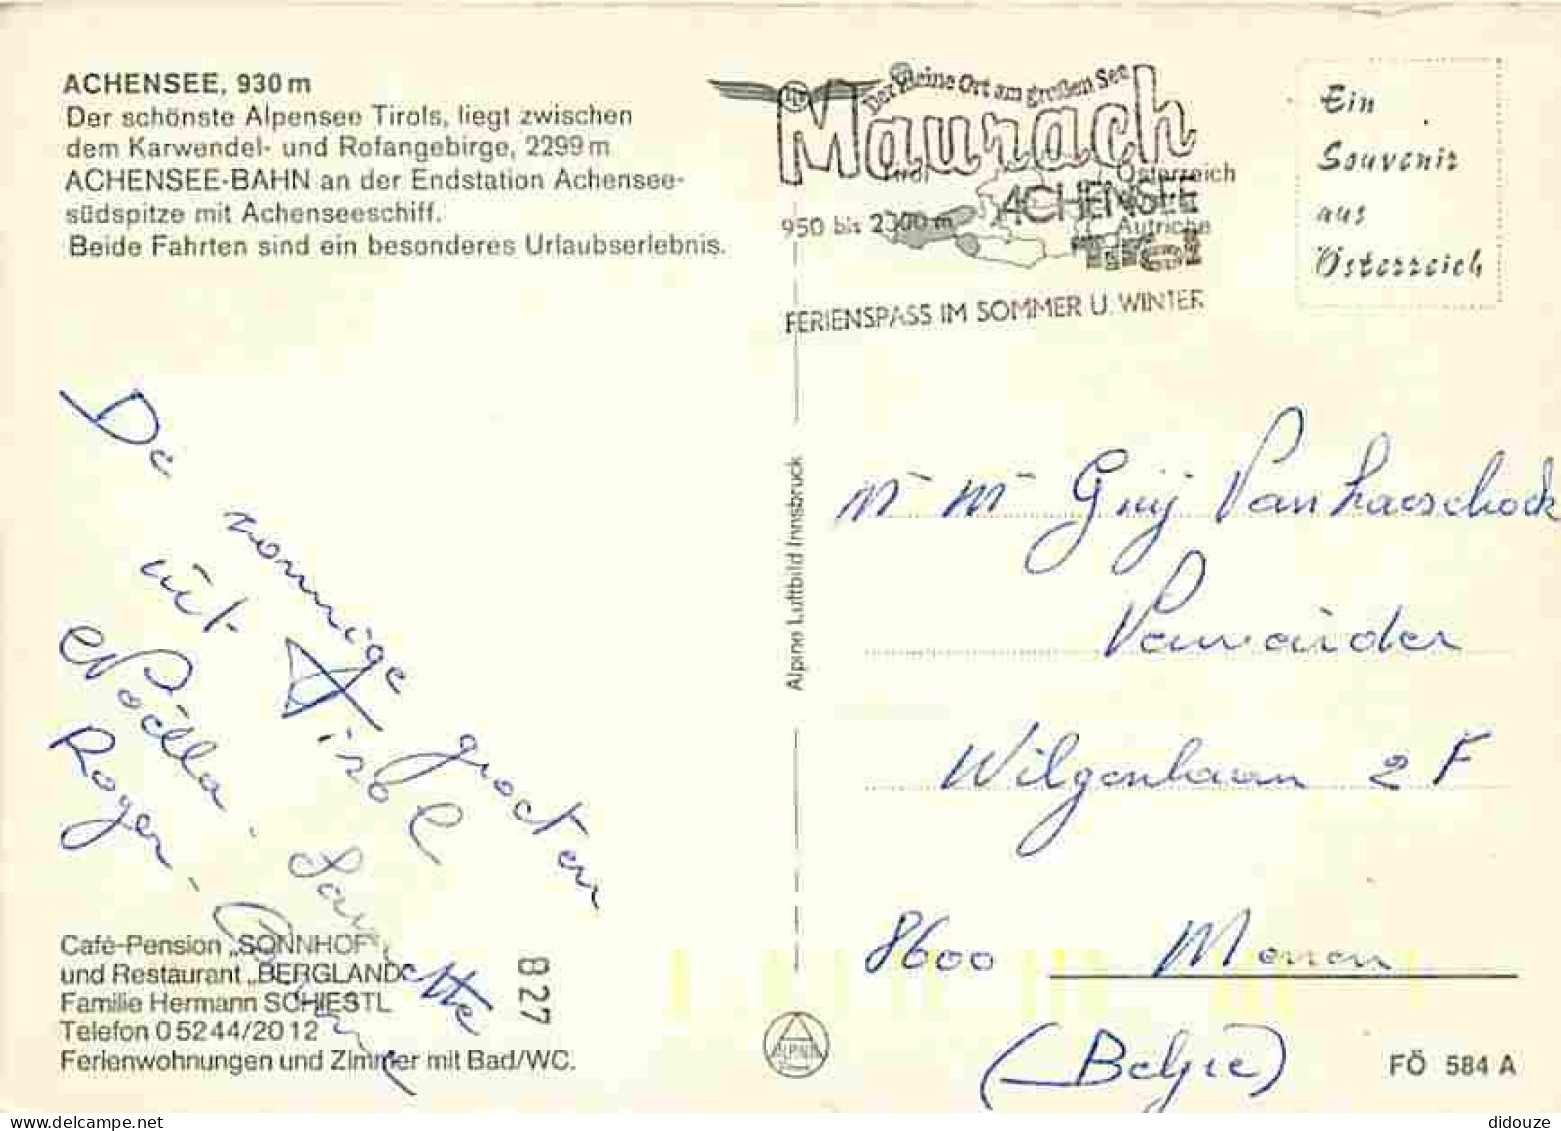 ACHENSEE, 930 m
Der schönste Alpensee Tirols, liegt zwischen
dem Karwendel- und Rofangebirge, 2299 m
ACHENSEE-BAHN an der Endstation Achensee-
südspitze mit Achenseeschiff.
Beide Fahrten sind ein besonderes Urlaubserlebnis.
Der kleine Ort am großen See
Maurach
Tirol Österreich
ACHENSEE
950 bis 2300 m Autriche
Tirol
FERIENSPASS IM SOMMER U. WINTER
Ein
Souvenir
aus
Österreich
De zonnige groeten
uit Tirol
Noëlla - Laurette
Roger -
Café-Pension „SONNHOF"
und Restaurant „BERGLAND"
Familie Hermann SCHIESTL
Telefon 0 52 44/20 12
Ferienwohnungen und Zimmer mit Bad/WC.
827
Alpine Luftbild Innsbruck
ALPINE
Mr Mr Guy Vanhaeschock
Wilgenlaan 2 F
8600 Menen
(Belgie)
FÖ 584 A
didouze